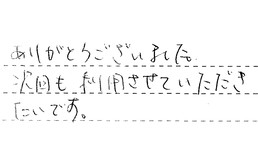 ありがとうございました。
次回も利用させていただき
たいです。